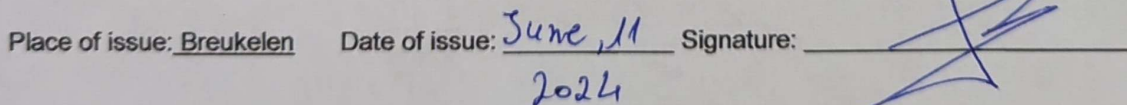 Place of issue: Breukelen Date of issue: June, 11 Signature:
2024